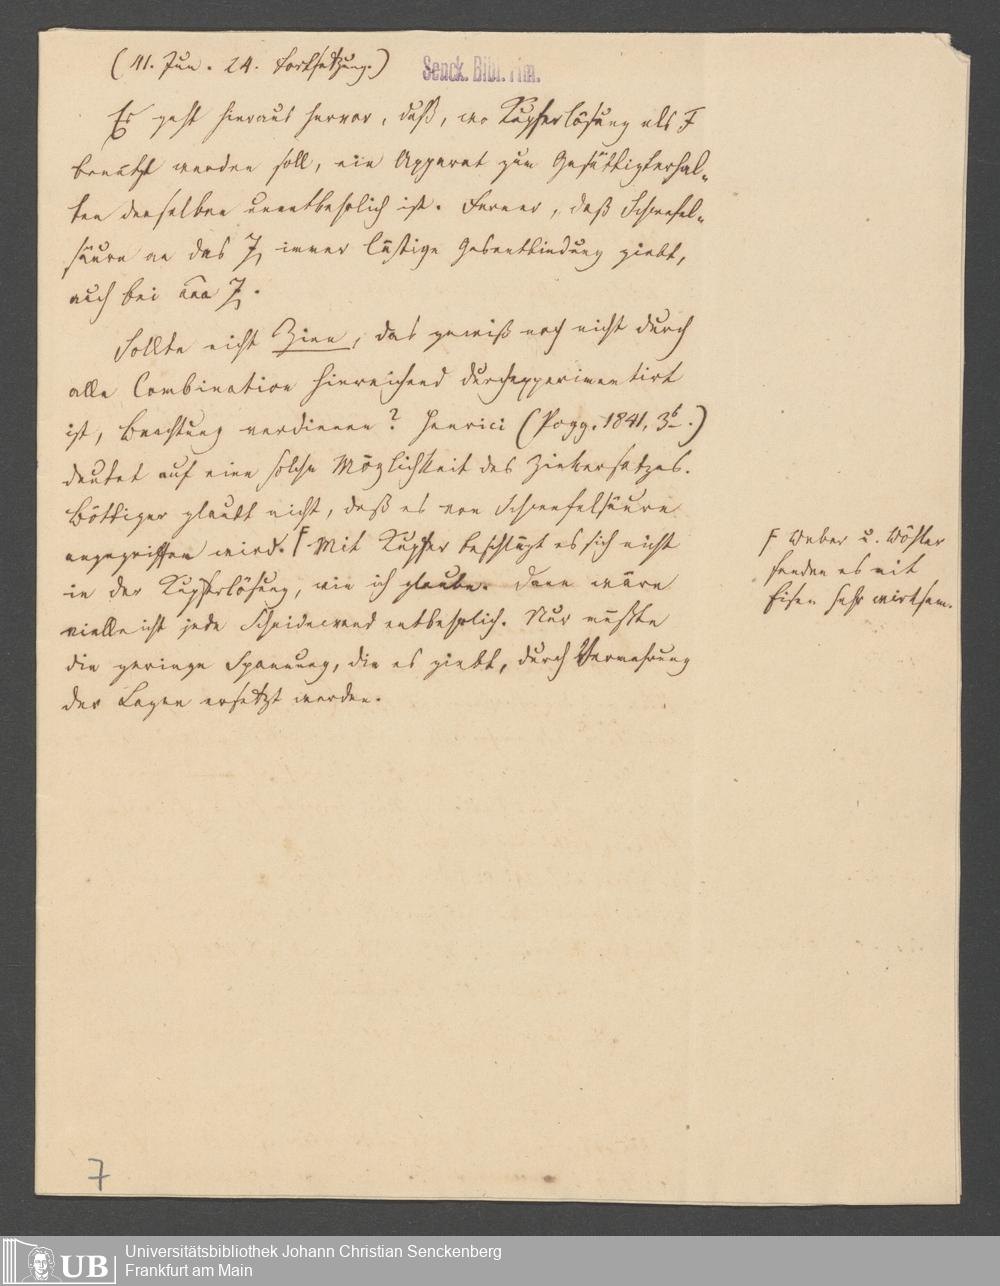 (41. Jun. 24. Fortsetzung.)
Senck. Bibl. Ffm.
Es geht hieraus hervor, daß, wo Kupferlösung als F
benutzt werden soll, ein Apparat zum Gesättigterhal-
ten derselben unentbehrlich ist. Ferner, daß Schwefel-
säure an das Z immer lästige Gasentbindung giebt,
auch bei Z.
Sollte nicht Zinn, das gewiß noch nicht durch
alle Combination hinreichend durchexperimentirt
ist, Beachtung verdienen? Henrici (Pogg. 1841, 3b.)
deutet auf eine solche Möglichkeit des Zinkersatzes.
Böttiger glaubt nicht, daß es von Schwefelsäure
angegriffen wird. F Mit Kupfer beschlägt es sich nicht
in der Kupferlösung, wie ich glaube. Dann wäre
vielleicht jede Scheidewand entbehrlich. Nur müßte
die geringe Spannung, die es giebt, durch Vermehrung
der Lagen ersetzt werden.
F Weber u. Wöhler
fanden es mit
Eisen sehr wirksam.
7
UB
Universitätsbibliothek Johann Christian Senckenberg
Frankfurt am Main